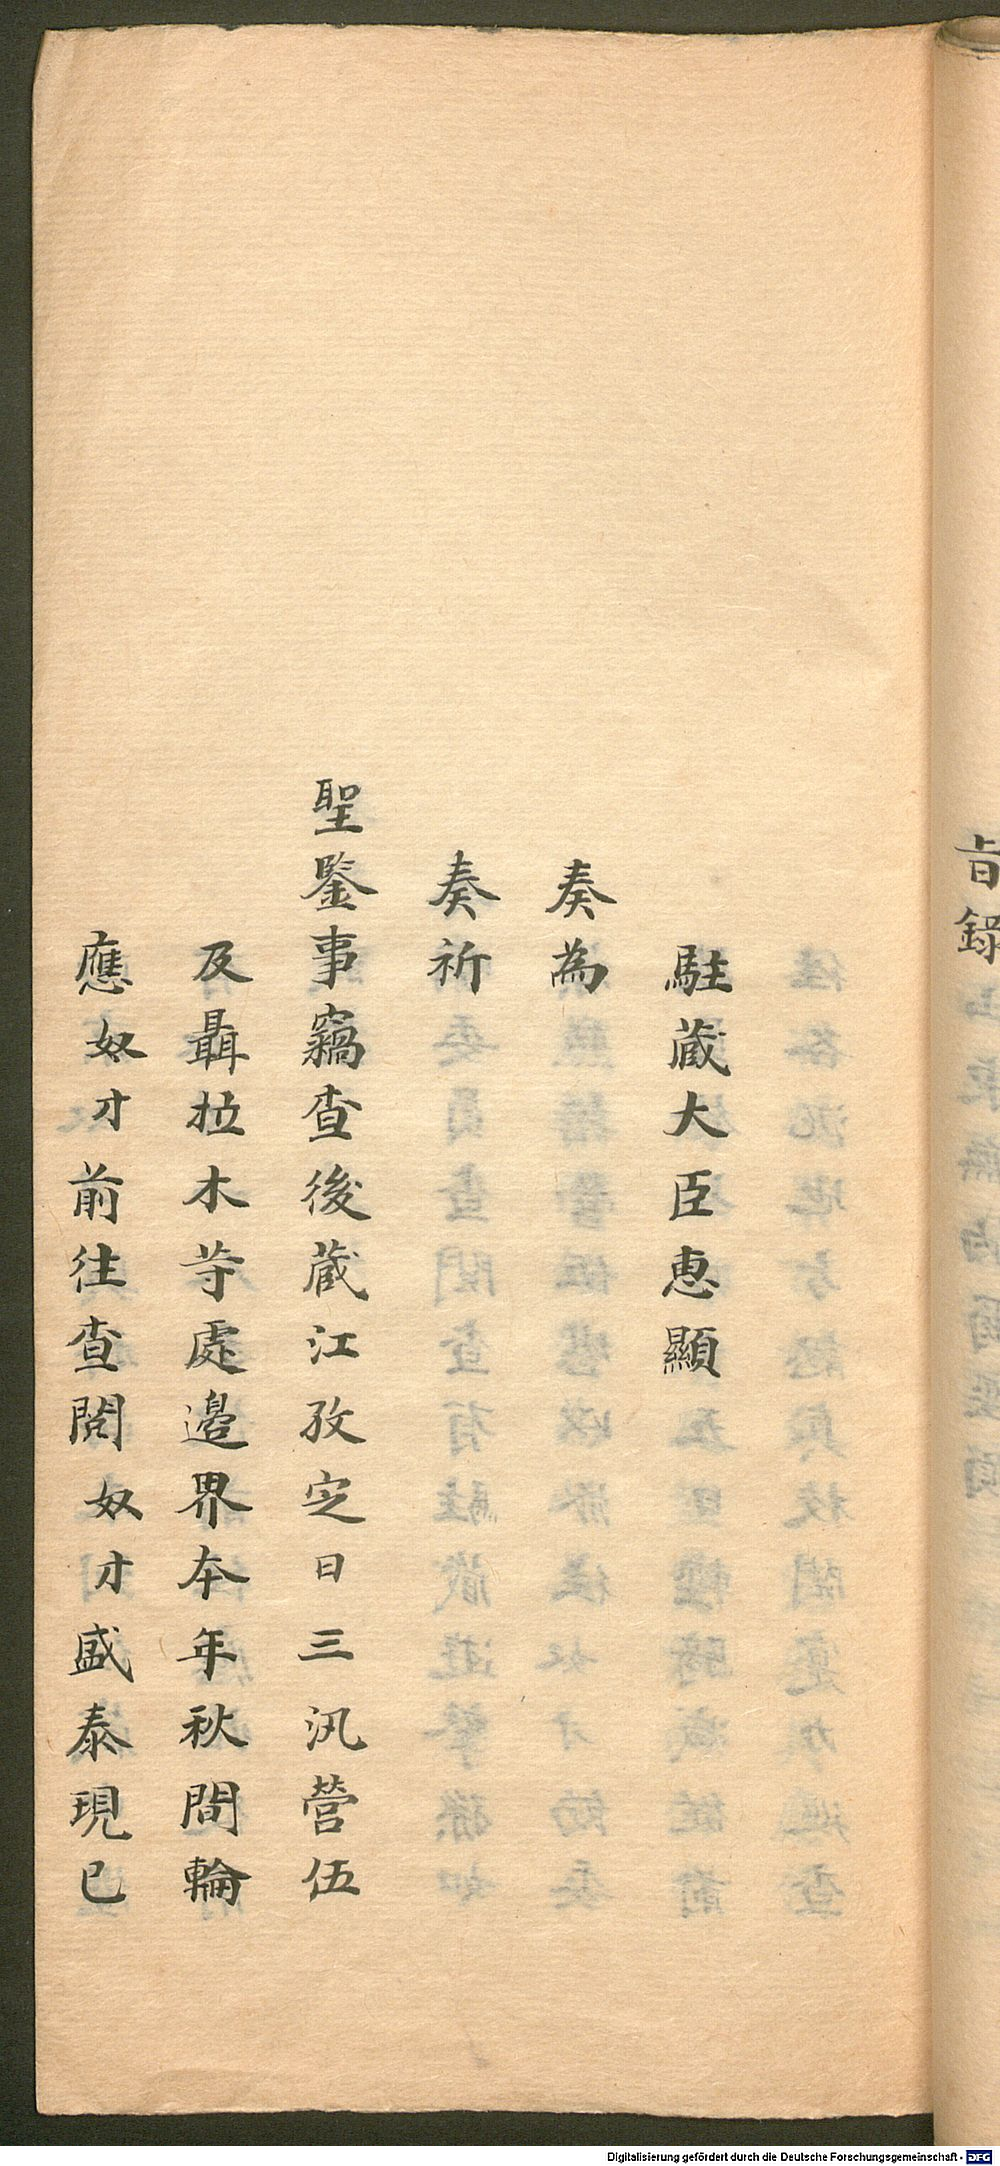 旨錄
駐藏大臣惠顯
奏為
奏祈
聖鑒事竊查後藏江孜定日三汛營伍
及聶拉木等處邊界本年秋間輪
應奴才前往查閱奴才盛泰現已
Digitalisierung gefördert durch die Deutsche Forschungsgemeinschaft - DFG